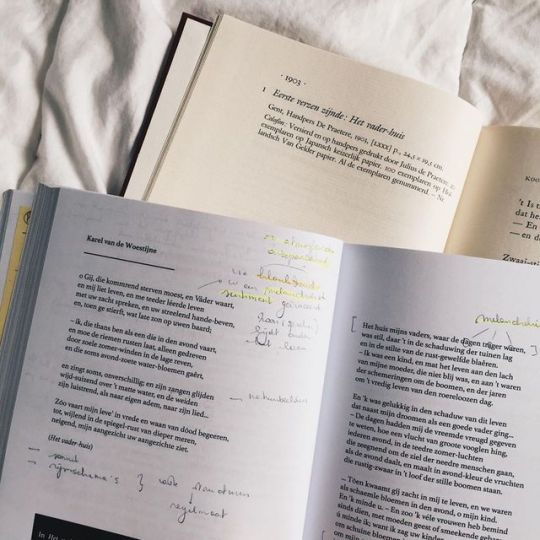 · 1903 ·
1 Eerste verzen zijnde: Het vader-huis
Gent, Handpers De Praetere, 1903, [LXXX] p., 24,5 × 19,5 cm.
Colofon: Versierd en op handpers gedrukt door Julius de Praetere: 20
exemplaren op Japansch keizerlijk papier, 100 exemplaren op Hol-
landsch Van Gelder papier. Al de exemplaren genummerd. – Nr.
't Is
dat he
— En
— en d
Zwaai-st
Karel van de Woestijne
o Gij, die kommrend sterven moest, en Váder waart,
en mij liet leven, en me teeder léerde leven
met uw zacht spreken, en uw streelend hande-beven,
en, toen ge stierft, wat late zon op uwen baard;
– ik, die thans ben als een die in den avond vaart,
en moe de riemen rusten laat, alleen gedreven
door zoele zomer-winden in de lage reven,
en die soms avond-zoete water-bloemen gaêrt,
en zingt soms, onverschillig; en zijn zangen glijden
wijd-suizend over 't matte water, en de weiden
zijn luistrend, als naar eigen adem, naar zijn lied...
Zóo vaart mijn leve' in vrede en waan van dóod begeeren,
tot, wijlend in de spiegel-rust van dieper meren,
neigend, mijn aangezicht uw aangezichte ziet.
(Het vader-huis)
melancholisch
sentiment
natuurbeelden
— sonnet
— rijmschema's } vaste structuren
regelmaat
In Het
melancholie
Het huis mijns vaders, waar de dagen trager waren,
was stil, daar 't in de schaduwing der tuinen lag
en in de stilte van de rust-gewelfde blaêren.
– Ik was een kind, en mat het leven aan den lach
van mijne moeder, die niet blij was, en aan 't waren
der schemeringen om de boomen, en der jaren
om 't vredig leven van den roereloozen dag.
En 'k was gelukkig in den schaduw van dit leven
dat naast mijn droomen als een goede vader ging...
– De dagen hadden mij de vreemde vreugd gegeven
te weten, hoe een vlucht van groote vooglen hing,
iederen avond, in de teedre zomer-luchten
die zeegnend om de ziel der needre menschen gaan,
als de avond daalt, en maalt in avond-kleur de vruchten
die rustig-zwaar in 't loof der stille boomen staan.
– Tóen kwaamt gij zacht in mij te leven, en we waren
als schaemle bloemen in den avond, o mijn kind.
En 'k minde u. – En zoo 'k véle vrouwen heb bemind
sinds dien, met moeden geest of smeekende gebaren:
ú minde ik; want ik zag uw kinder
om schuine bloemen